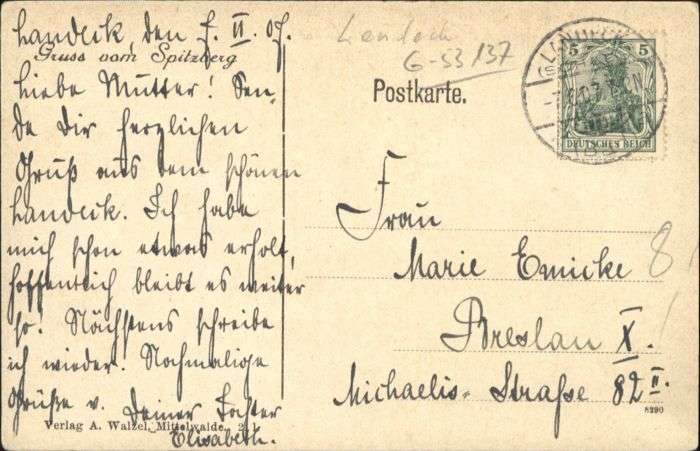 Landeck, den 7. II. 07.
Gruss vom Spitzberg
Liebe Mutter! Sen-
de Dir herzlichen
Gruß aus dem schönen
Landeck. Ich habe
mich schon etwas erholt,
hoffentlich bleibt es weiter
so! Nächstens schreibe
ich wieder. Nochmalige
Grüße v. Deiner Tochter
Elisabeth.
Verlag A. Walzel, Mittelwalde.
Landeck
G-53/137
Postkarte.
5 5
DEUTSCHES REICH
Frau
Marie Emicke
Breslau X.
Michaelis-Straße 82 II.
8
8290